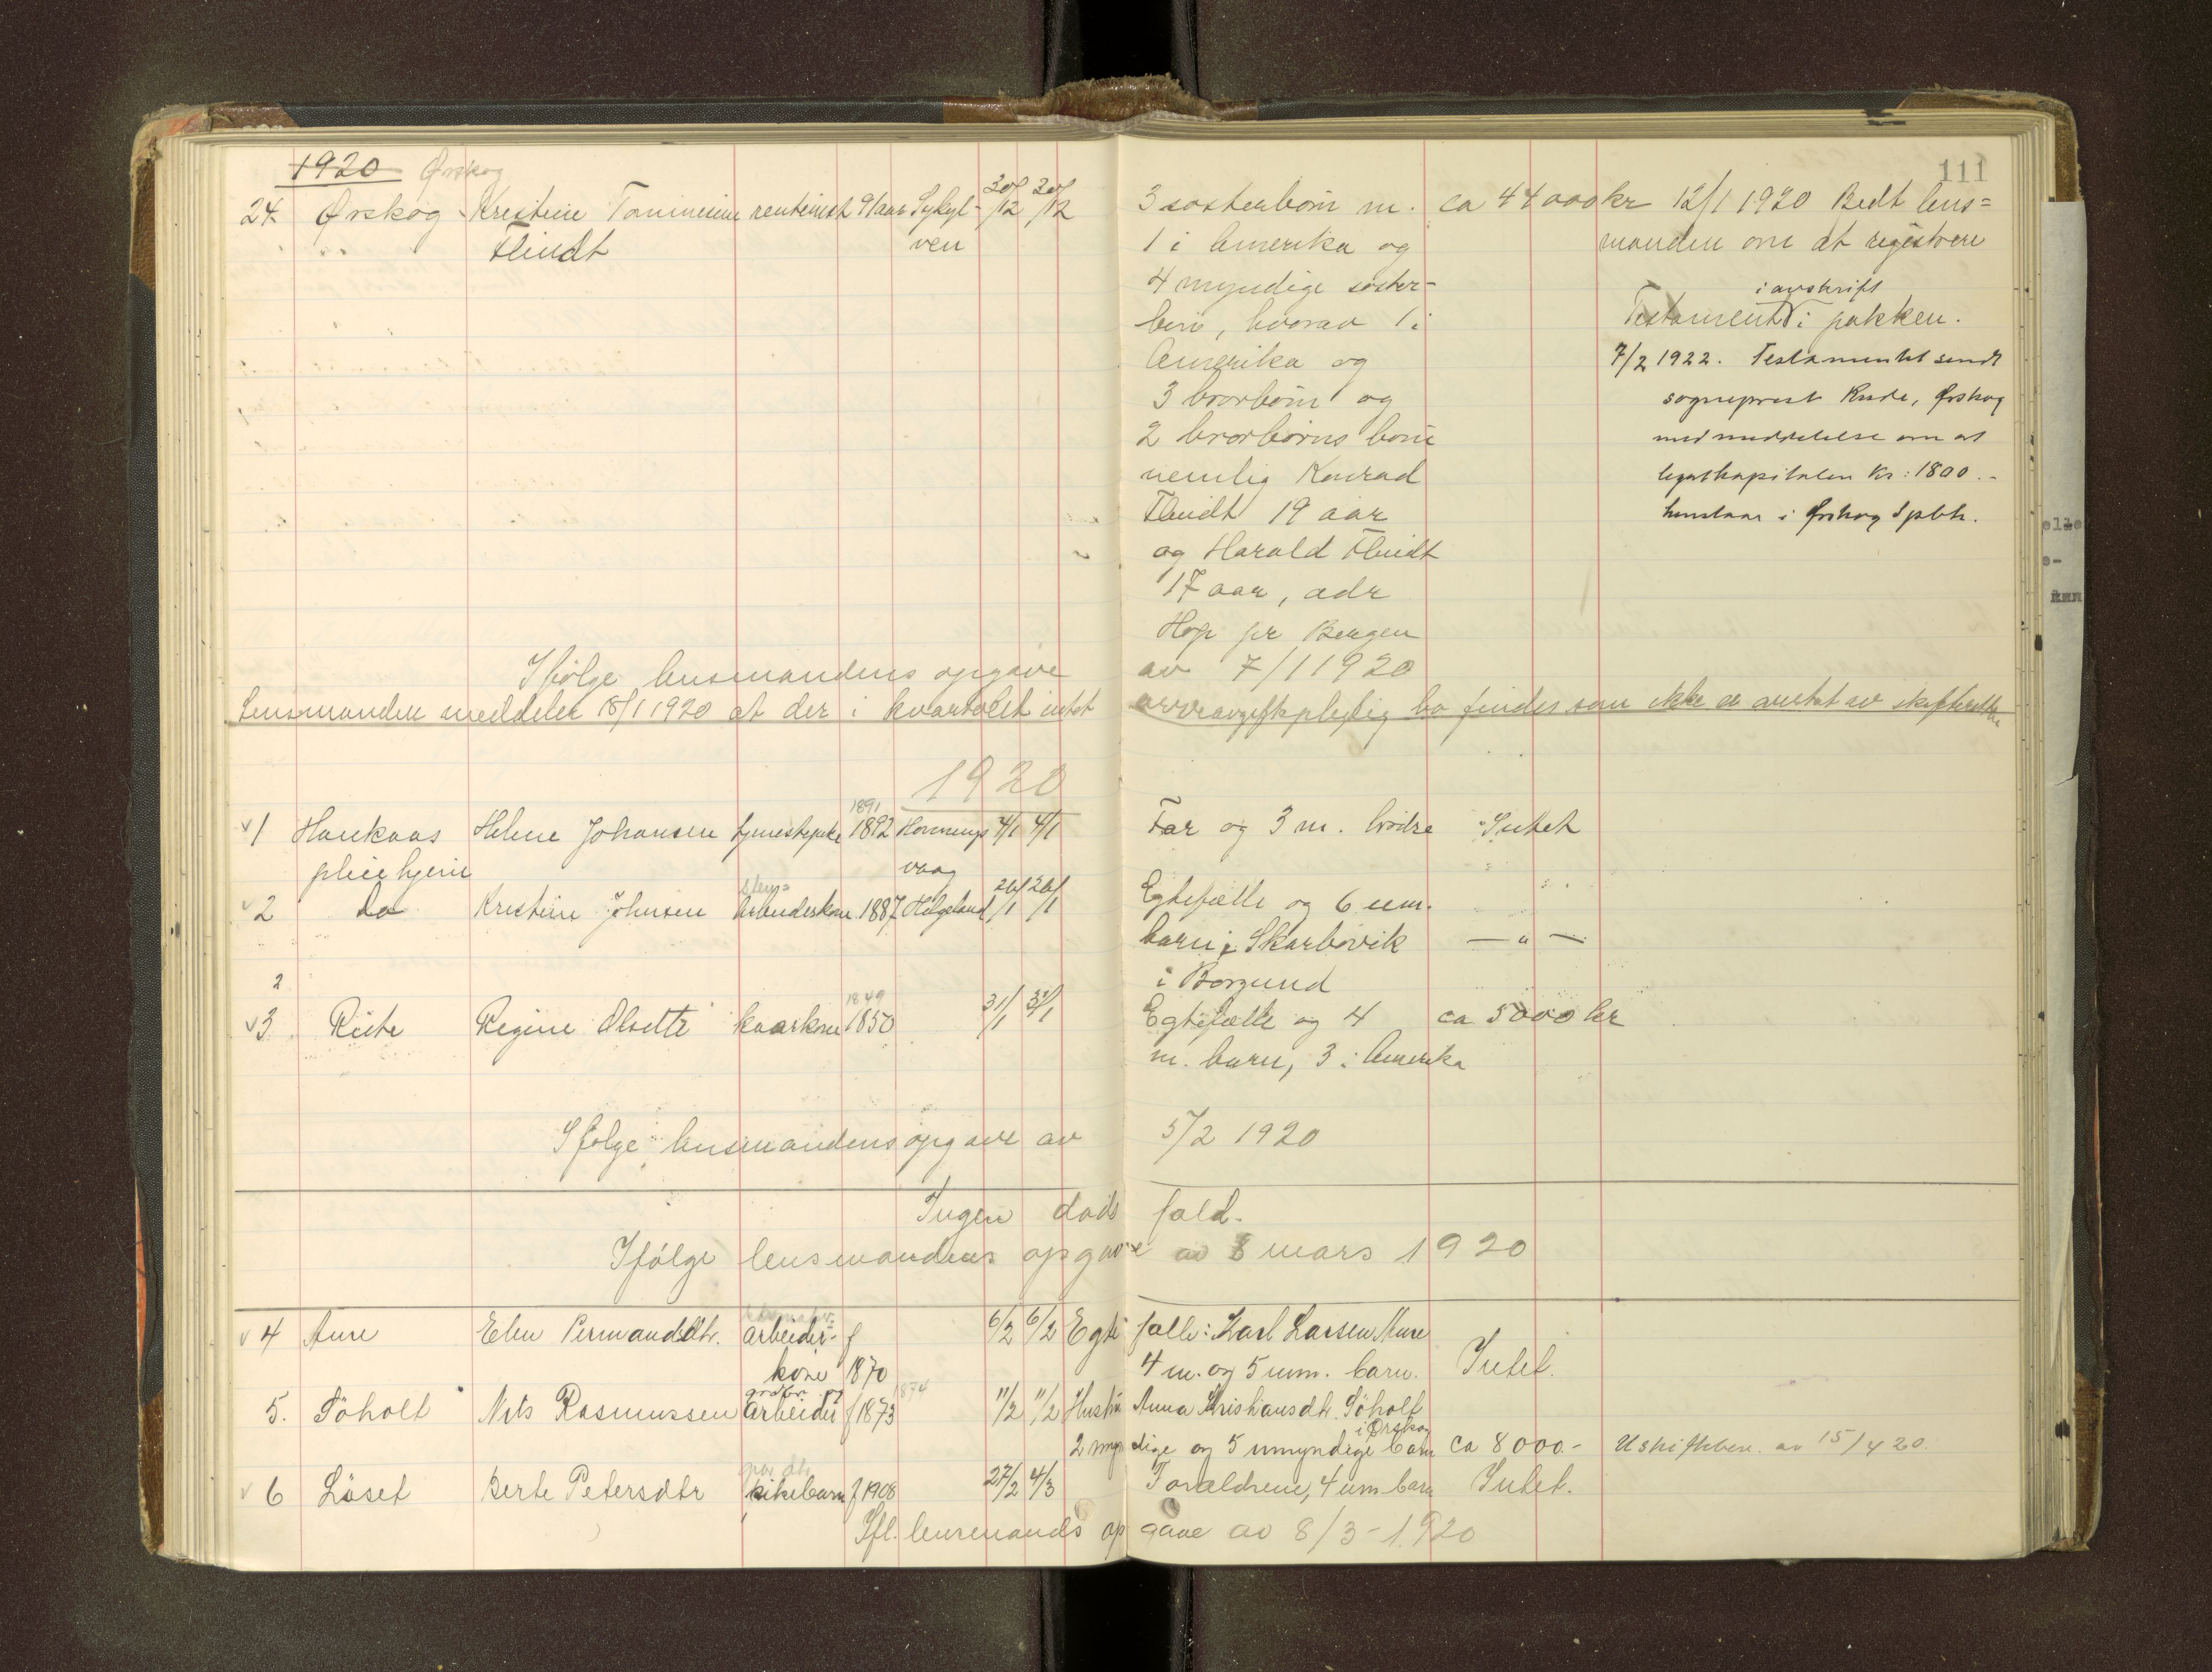 111
1920 Ørskog
24. Ørskog Kristine Tominine rentenist 91 aar Sykyl- 30/12 30/12 3 søsterbørn m. ca 44 000 kr 12/1 1920 Bedt lens=
Flindt ven 1 i Amerika og manden om at registrere
4 myndige søster- i avskrift
børn, hvorav 1 i Testament i pakken.
Amerika og 7/2 1922. Testamentet sendt
3 brorbørn og sogneprest Rude, Ørskog
2 brorbørns børn med meddelelse om at
nemlig Konrad legatkapitalen kr: 1800.-
Flindt 19 aar henstaar i Ørskog Spbk.
og Harald Flindt
17 aar, adr
Hop pr Bergen
Ifølge lensmandens opgave av 7/1 1920
Lensmanden meddeler 18/1 1920 at der i kvartalet intet arveavgiftspligtig bo findes som ikke er anmeldt av skifteretten
1920
1891
v 1 Haukaas Helene Johansen tjenestepike 1892 Honnings 4/1 4/1 Far og 3 m. brødre Intet
pleiehjem vaag
v 2 do Kristine Johnsen arbeiderkone 1887 Helgeland 26/1 26/1 Egtefælle og 6 um.
barn i Skarbøvik — " —
i Borgund
2 1849
v 3. Riste Regine Olsdtr kaarkone 1850 31/1 31/1 Egtefælle og 4 ca 5000 kr
m. barn, 3 i Amerika
Ifølge lensmandens opgave av 5/2 1920
Ingen dødsfald.
Ifølge lensmandens opgave av 8 mars 1920
v 4 Aure Elen Permandsdtr. arbeider- f 6/2 6/2 Egtefælle: Karl Larsen Aure
kone 1870 4 m. og 5 um. barn. Intet.
gaardbr. og 1874
5. Søholt Nils Rasmussen arbeider f 1873 11/2 11/2 Hustru Anna Kristiansdtr. Søholt
i Ørskog
2 myndige og 5 umyndige barn ca 8000.- Uskiftebev. av 15/4 20.
v 6 Løset Berte Petersdtr pikebarn f 1908 27/2 4/3 Forældrene, 4 um barn Intet.
Ifl. lensmands opgave av 8/3-1920